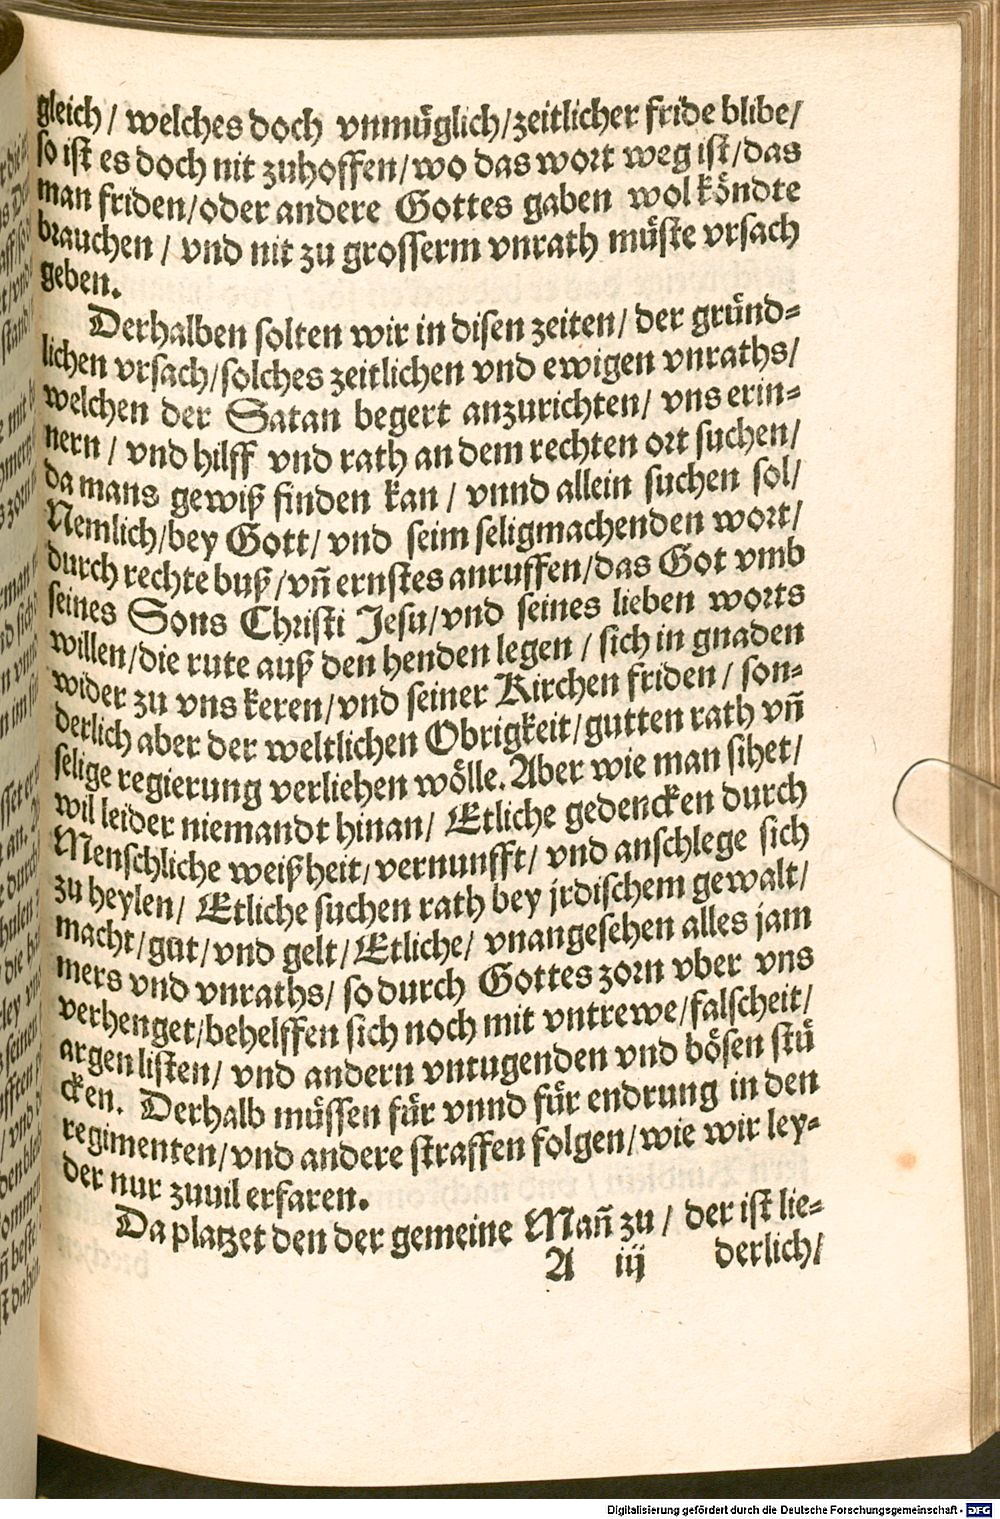 gleich / welches doch vnmüglich/zeitlicher fride blibe/
so ist es doch nit zuhoffen/wo das wort weg ist/das
man friden/oder andere Gottes gaben wol köndte
brauchen / vnd nit zu grosserm vnrath müste vrsach
geben.
Derhalben solten wir in disen zeiten/ der gründ-
lichen vrsach/solches zeitlichen vnd ewigen vnraths/
welchen der Satan begert anzurichten/ vns erin-
nern / vnd hilff vnd rath an dem rechten ort suchen/
da mans gewiß finden kan / vnnd allein suchen sol/
Nemlich/bey Gott/ vnd seim seligmachenden wort/
durch rechte buß/vñ ernstes anruffen/das Got vmb
seines Sons Christi Jesu/vnd seines lieben worts
willen/die rute auß den henden legen / sich in gnaden
wider zu vns keren/vnd seiner Kirchen friden / son-
derlich aber der weltlichen Obrigkeit/gutten rath vñ
selige regierung verliehen wölle. Aber wie man sihet/
wil leider niemandt hinan/ Etliche gedencken durch
Menschliche weißheit/vernunfft/ vnd anschlege sich
zu heylen/ Etliche suchen rath bey jrdischem gewalt/
macht/gut/vnd gelt/Etliche/ vnangesehen alles jam
mers vnd vnraths/ so durch Gottes zorn vber vns
verhenget/behelffen sich noch mit vntrewe/falscheit/
argen listen/ vnd andern vntugenden vnd bösen stü
cken. Derhalb müssen für vnnd für endrung in den
regimenten/vnd andere straffen folgen/wie wir ley-
der nur zuuil erfaren.
Da platzet den der gemeine Mañ zu / der ist lie-
A iij derlich/
Digitalisierung gefördert durch die Deutsche Forschungsgemeinschaft - DFG